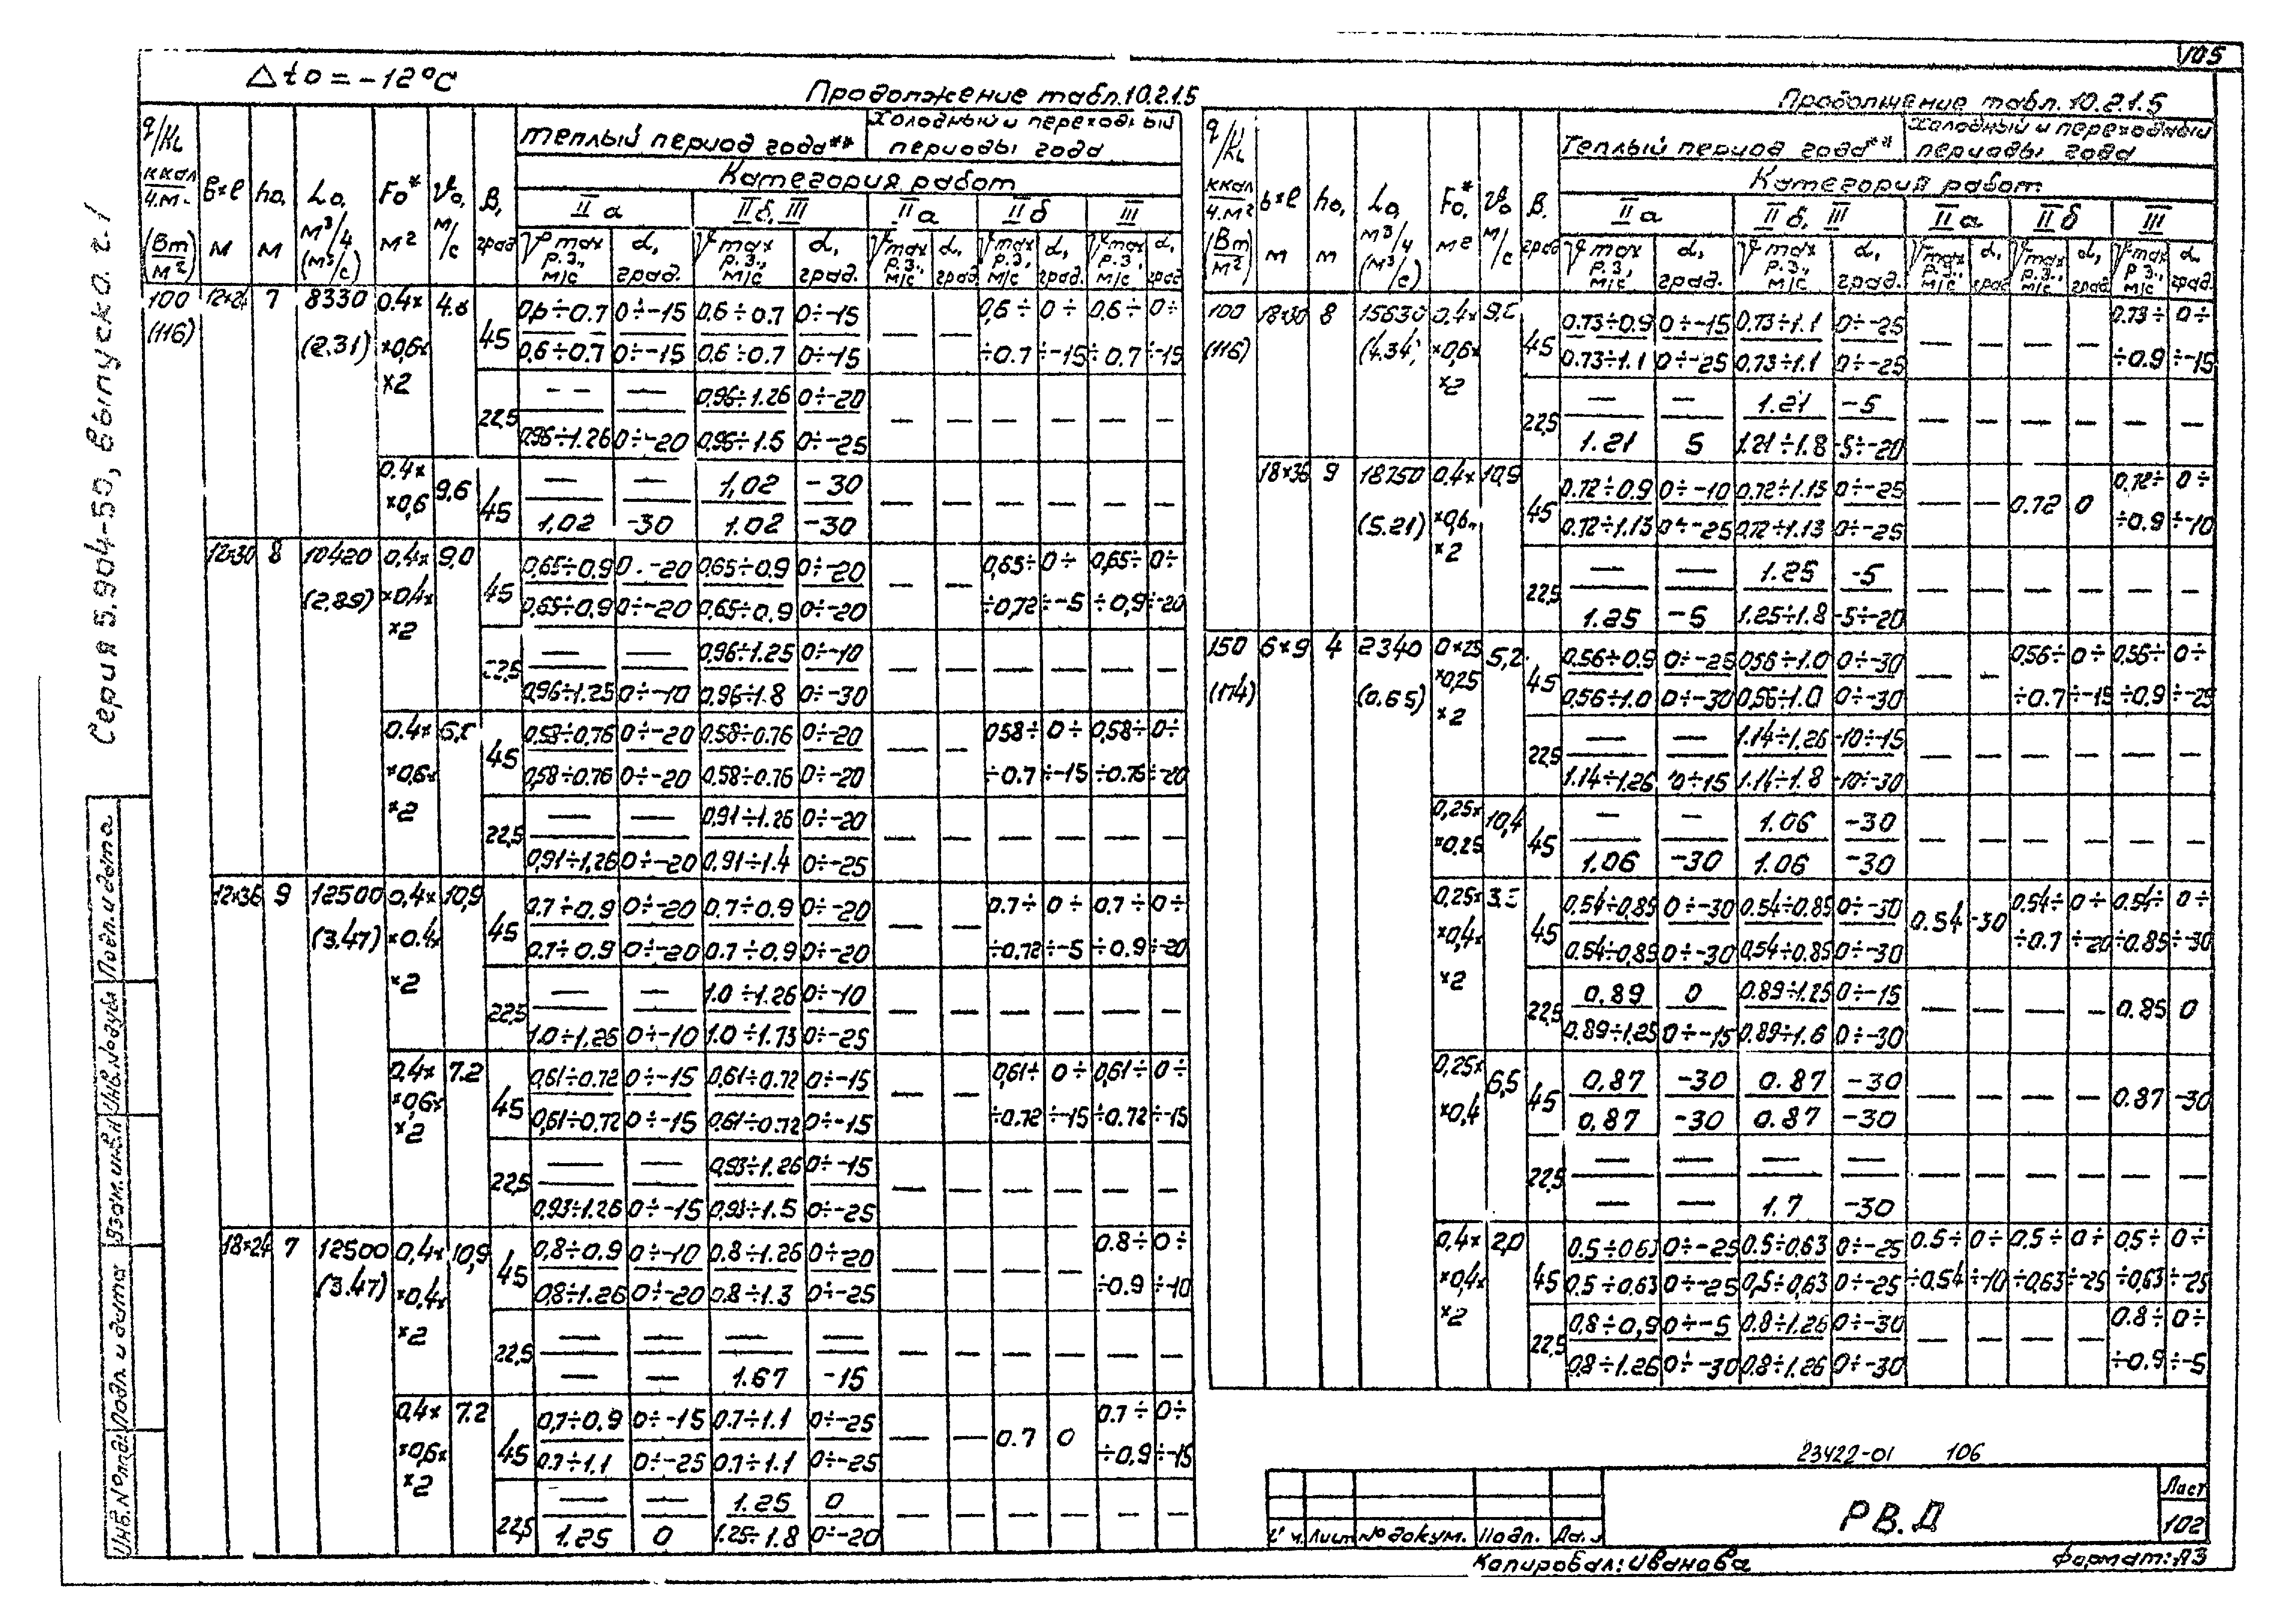 105
Δto = -12°С
Продолжение табл.10.2.1.5
q/KL ккал/ч.м² (Вт/м²) | в×ℓ м | ho, м | Lo, м³/ч (м³/с) | Fo* м² | Vo, м/с | β, град
теплый период года** | Холодный и переходный периоды года
Категория работ
IIа | IIб, III | IIа | IIб | III
Vmax р.з., м/с | α, град. | Vmax р.з., м/с | α, град. | Vmax р.з., м/с | α, град | Vmax р.з., м/с | α, град. | Vmax р.з., м/с | α, град
100 (116) | 12×24 | 7 | 8330 (2.31) | 0.4× ×0,6× ×2 | 4.8 | 45 | 0,6÷0.7 | 0÷-15 | 0.6÷0.7 | 0÷-15 | — | — | 0,6÷ ÷0.7 | 0÷ ÷-15 | 0,6÷ ÷0.7 | 0÷ ÷-15
0.6÷0.7 | 0÷-15 | 0.6÷0.7 | 0÷-15
22,5 | — | — | 0.96÷1.26 | 0÷-20 | — | — | — | — | — | —
0.96÷1.26 | 0÷-20 | 0,96÷1.5 | 0÷-25
0.4× ×0,6 | 9,6 | 45 | — | — | 1,02 | -30 | — | — | — | — | — | —
1,02 | -30 | 1.02 | -30
12×30 | 8 | 10420 (2.89) | 0,4× ×0,4× ×2 | 9,0 | 45 | 0,65÷0,9 | -20 | 0.65÷0.9 | 0÷-20 | — | — | 0,65÷ ÷0,72 | 0÷ ÷-5 | 0,65÷ ÷0,9 | 0÷ ÷-20
0,65÷0,9 | 0÷-20 | 0,65÷0,9 | 0÷-20
22,5 | — | — | 0,96÷1.25 | 0÷-10 | — | — | — | — | — | —
0,96÷1.25 | 0÷-10 | 0,96÷1.8 | 0÷-30
0.4× ×0,6× ×2 | 45 | 0,58÷0,76 | 0÷-20 | 0.58÷0.76 | 0÷-20 | — | — | 0.58÷ ÷0.7 | 0÷ ÷-15 | 0,58÷ ÷0.76 | 0÷ ÷-20
0,58÷0.76 | 0÷-20 | 0.58÷0.76 | 0÷-20
22,5 | — | — | 0,91÷1.26 | 0÷-20 | — | — | — | — | — | —
0,91÷1,26 | 0÷-20 | 0.91÷1.4 | 0÷-25
12×36 | 9 | 12500 (3.47) | 0.4× ×0.4× ×2 | 10,9 | 45 | 0.7÷0.9 | 0÷-20 | 0.7÷0.9 | 0÷-20 | — | — | 0.7÷ ÷0.72 | 0÷ ÷-5 | 0.7÷ ÷0.9 | 0÷ ÷-20
0.7÷0.9 | 0÷-20 | 0.7÷0.9 | 0÷-20
22,5 | — | — | 1.0÷1.26 | 0÷-10 | — | — | — | — | — | —
1.0÷1,26 | 0÷-10 | 1.0÷1.73 | 0÷-25
0,4× ×0,6× ×2 | 7.2 | 45 | 0,61÷0.72 | 0÷-15 | 0.61÷0.72 | 0÷-15 | — | — | 0,61÷ ÷0.72 | 0÷ ÷-15 | 0,61÷ ÷0.72 | 0÷ ÷-15
0,61÷0.72 | 0÷-15 | 0,61÷0.72 | 0÷-15
22,5 | — | — | 0,93÷1.26 | 0÷-15 | — | — | — | — | — | —
0,93÷1.26 | 0÷-15 | 0,93÷1.5 | 0÷-25
18×24 | 7 | 12500 (3.47) | 0,4× ×0,4× ×2 | 10,9 | 45 | 0,8÷0.9 | 0÷-10 | 0.8÷1.26 | 0÷20 | — | — | — | — | 0.8÷ ÷0.9 | 0÷ ÷-10
0,8÷1.26 | 0÷-20 | 0.8÷1.3 | 0÷-25
22,5 | — | — | — | — | — | — | — | — | — | —
— | — | 1.67 | -15
0,4× ×0,6× ×2 | 7.2 | 45 | 0,7÷0,9 | 0÷-15 | 0.7÷1.1 | 0÷-25 | — | — | 0.7 | 0 | 0.7÷ ÷0,9 | 0÷ ÷-15
0.7÷1,1 | 0÷-25 | 0.7÷1.1 | 0÷-25
22,5 | — | — | 1.25 | 0 | — | — | — | — | — | —
1.25 | 0 | 1.25÷1.8 | 0÷-20
Продолжение табл.10.2.1.5
q/KL ккал/ч.м² (Вт/м²) | в×ℓ м | ho, м | Lo, м³/ч (м³/с) | Fo,* м² | Vo м/с | β, град
Теплый период года** | Холодный и переходный периоды года
Категория работ
IIа | IIб, III | IIа | IIб | III
Vmax р.з., м/с | α, град. | Vmax р.з., м/с | α, град. | Vmax р.з., м/с | α, град | Vmax р.з., м/с | α, град | Vmax р.з., м/с | α, град.
100 (116) | 18×30 | 8 | 15630 (4.34) | 0,4× ×0,6× ×2 | 45 | 0.73÷0.9 | 0÷-15 | 0.73÷1.1 | 0÷-25 | — | — | — | — | 0.73÷ ÷0.9 | 0÷ ÷-15
0.73÷1.1 | 0÷-25 | 0.73÷1.1 | 0÷-25
22,5 | — | — | 1.21 | -5 | — | — | — | — | — | —
1.21 | 5 | 1.21÷1.8 | -5÷-20
18×36 | 9 | 18750 (5.21) | 0,4× ×0,6× ×2 | 10,9 | 45 | 0.72÷0.9 | 0÷-10 | 0.72÷1.13 | 0÷-25 | — | — | 0.72 | 0 | 0,72÷ ÷0.9 | 0÷ ÷-10
0.72÷1.13 | 0÷-25 | 0.72÷1.13 | 0÷-25
22,5 | — | — | 1.25 | -5 | — | — | — | — | — | —
1.25 | -5 | 1.25÷1.8 | -5÷-20
150 (174) | 6×9 | 4 | 2340 (0.65) | 0×25 ×0,25 ×2 | 5,2 | 45 | 0.56÷0.9 | 0÷-25 | 0,56÷1.0 | 0÷-30 | — | — | 0,56÷ ÷0.7 | 0÷ ÷-15 | 0,56÷ ÷0.9 | 0÷ ÷-25
0,56÷1.0 | 0÷-30 | 0,56÷1.0 | 0÷-30
22,5 | — | — | 1.14÷1.26 | -10÷-15 | — | — | — | — | — | —
1.14÷1.26 | 0÷15 | 1.14÷1.8 | -10÷-30
0,25× ×0,25 | 10,4 | 45 | — | — | 1.06 | -30 | — | — | — | — | — | —
1.06 | -30 | 1.06 | -30
0,25× ×0,4× ×2 | 45 | 0.54÷0,85 | 0÷-30 | 0.54÷0.85 | 0÷-30 | 0.54 | -30 | 0.54÷ ÷0.7 | 0÷ ÷-20 | 0.54÷ ÷0.85 | 0÷ ÷-30
0.54÷0,85 | 0÷-30 | 0.54÷0.85 | 0÷-30
22,5 | 0.89 | 0 | 0.89÷1.25 | 0÷-15 | — | — | — | — | 0.85 | 0
0.89÷1.25 | 0÷-15 | 0.89÷1.6 | 0÷-30
0,25× ×0,4 | 6,5 | 45 | 0,87 | -30 | 0.87 | -30 | — | — | — | — | 0.87 | -30
0,87 | -30 | 0.87 | -30
22,5 | — | — | — | — | — | — | — | — | — | —
— | — | 1.7 | -30
0,4× ×0,4× ×2 | 2,0 | 45 | 0.5÷0.63 | 0÷-25 | 0.5÷0,63 | 0÷-25 | 0.5÷ ÷0.54 | 0÷ ÷-10 | 0,5÷ ÷0,63 | 0÷ ÷-25 | 0,5÷ ÷0,63 | 0÷ ÷-25
0.5÷0.63 | 0÷-25 | 0,5÷0,63 | 0÷-25
22,5 | 0,8÷0,9 | 0÷-5 | 0.8÷1.26 | 0÷-30 | — | — | — | — | 0.8÷ ÷0.9 | 0÷ ÷-5
0,8÷1.26 | 0÷-30 | 0.8÷1.26 | 0÷-30
Серия 5.904-50, выпуск 0. ч.1
Инв.№ подл. Подп. и дата Взам. инв.№ Инв.№ дубл Подп. и дата
23422-01 106
Лист №докум. Подп.
РВ.Д
Лист
102
Копировал: Иванова
Формат: А3